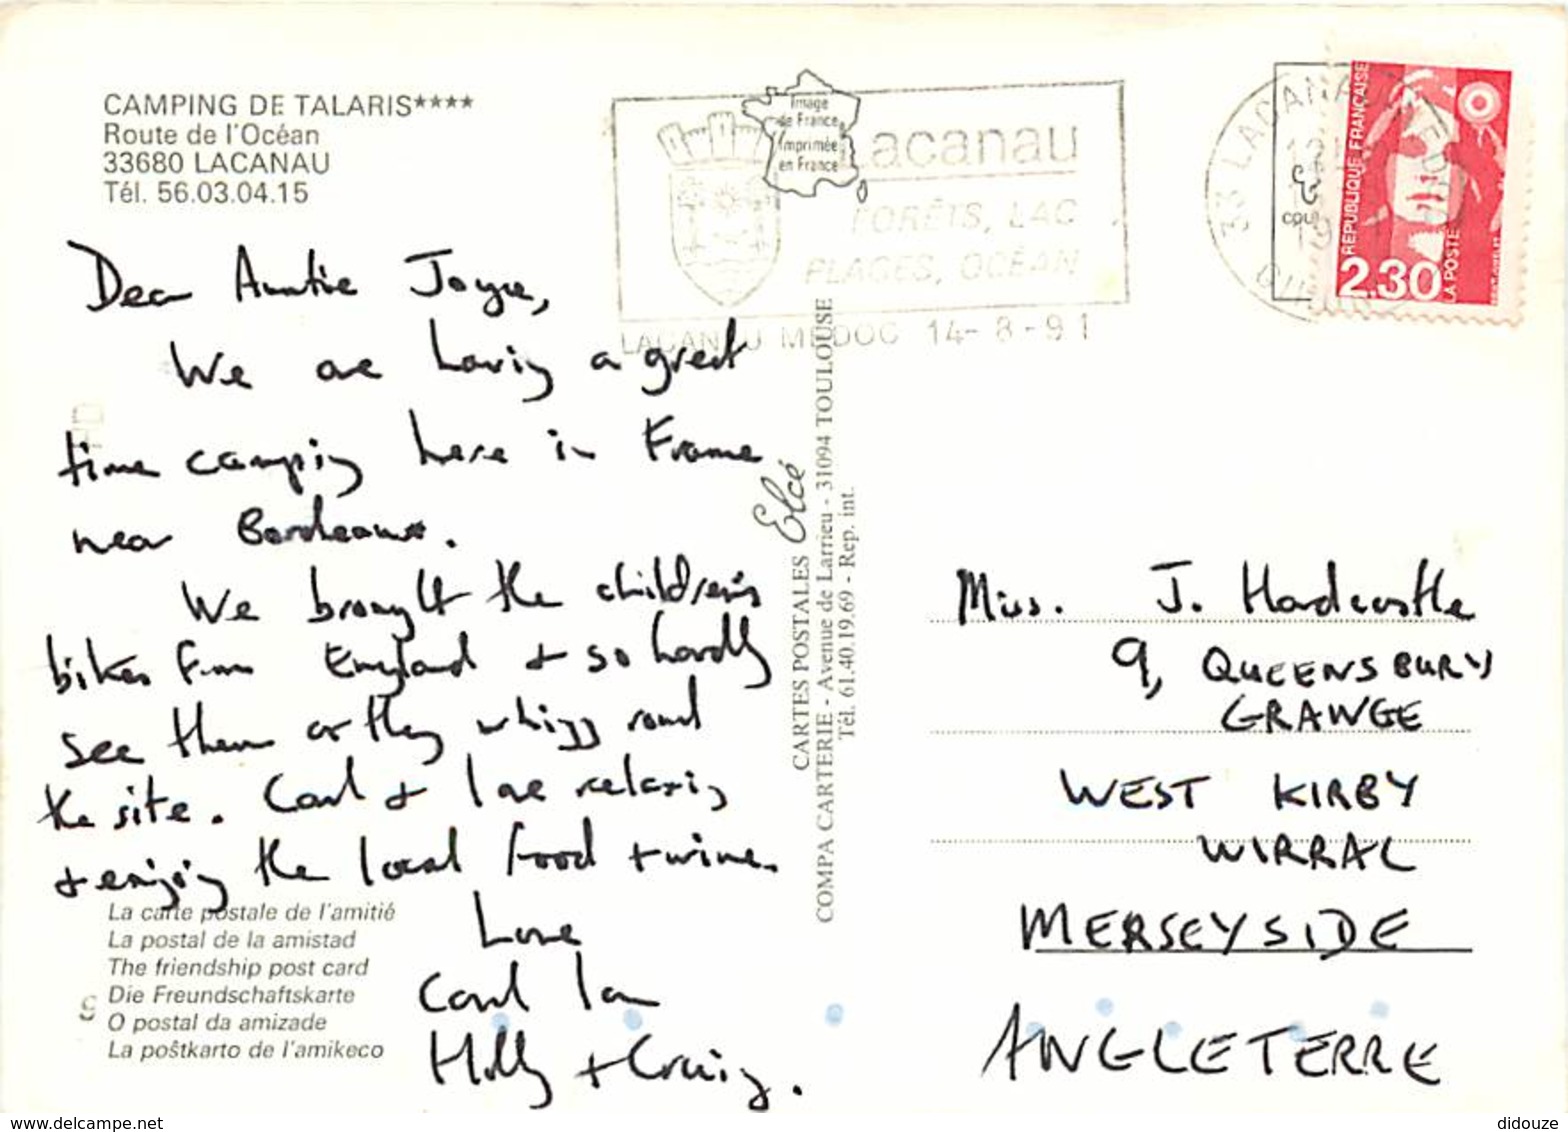 CAMPING DE TALARIS****
Route de l'Océan
33680 LACANAU
Tél. 56.03.04.15
Image
de France
Imprimée
en France
Lacanau
FORÊTS, LAC
PLAGES, OCÉAN
LACANAU MEDOC 14-8-91
33 LACANAU
RÉPUBLIQUE FRANÇAISE
2.30
LA POSTE
Dear Auntie Joyce,
We are having a great
time camping here in France
near Bordeaux.
We brought the children's
bikes from England & so hardly
see them as they whizz round
the site. Carol & Ian relaxing
& enjoying the local food & wine.
Love
Carol Ian
Holly & Craig.
CARTES POSTALES Elcé
COMPA CARTERIE - Avenue de Larrieu - 31094 TOULOUSE
Tél. 61.40.19.69 - Rep. int.
Miss. J. Hardcastle
9, QUEENSBURY
GRANGE
WEST KIRBY
WIRRAL
MERSEYSIDE
ANGLETERRE
La carte postale de l'amitié
La postal de la amistad
The friendship post card
Die Freundschaftskarte
O postal da amizade
La poŝtkarto de l'amikeco
www.delcampe.net
didouze